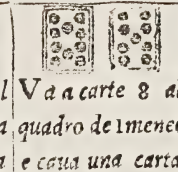 l V a a carte 8 al
a quadro de Imeneo
a e caua una carta